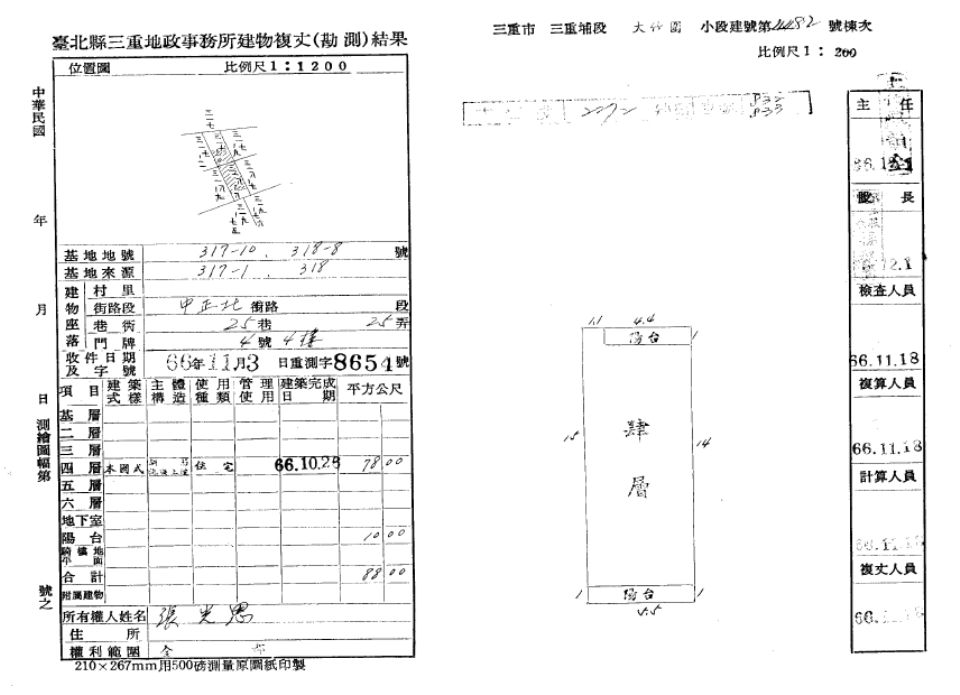 臺北縣三重地政事務所建物複丈(勘測)結果
位置圖 比例尺1:1200
中華民國 年 月 日測繪圖幅第 號之
基地地號 317-10、318-8 號
基地來源 317-1、318
建物座落
村里
街路段 中正北 街路 段
巷衖 25巷 25弄
門牌 4號4樓
收件日期及字號 66年11月3日重測字8654號
項目 建築式樣 主體構造 使用種類 管理使用 建築完成日期 平方公尺
基層
二層
三層
四層 本國式 住宅 66.10.28 78 00
五層
六層
地下室
陽台 10 00
騎樓地平面
合計 88 00
附屬建物
所有權人姓名
住所
權利範圍 全部
210×267mm用500磅測量原圖紙印製
三重市 三重埔段 大竹圍 小段建號第 號棟次
比例尺1:200
1.1 4.4
陽台
15 肆層 14
1 陽台 1
5.5
主任
股長
檢查人員
66.11.18
複算人員
66.11.18
計算人員
66.11.18
複丈人員